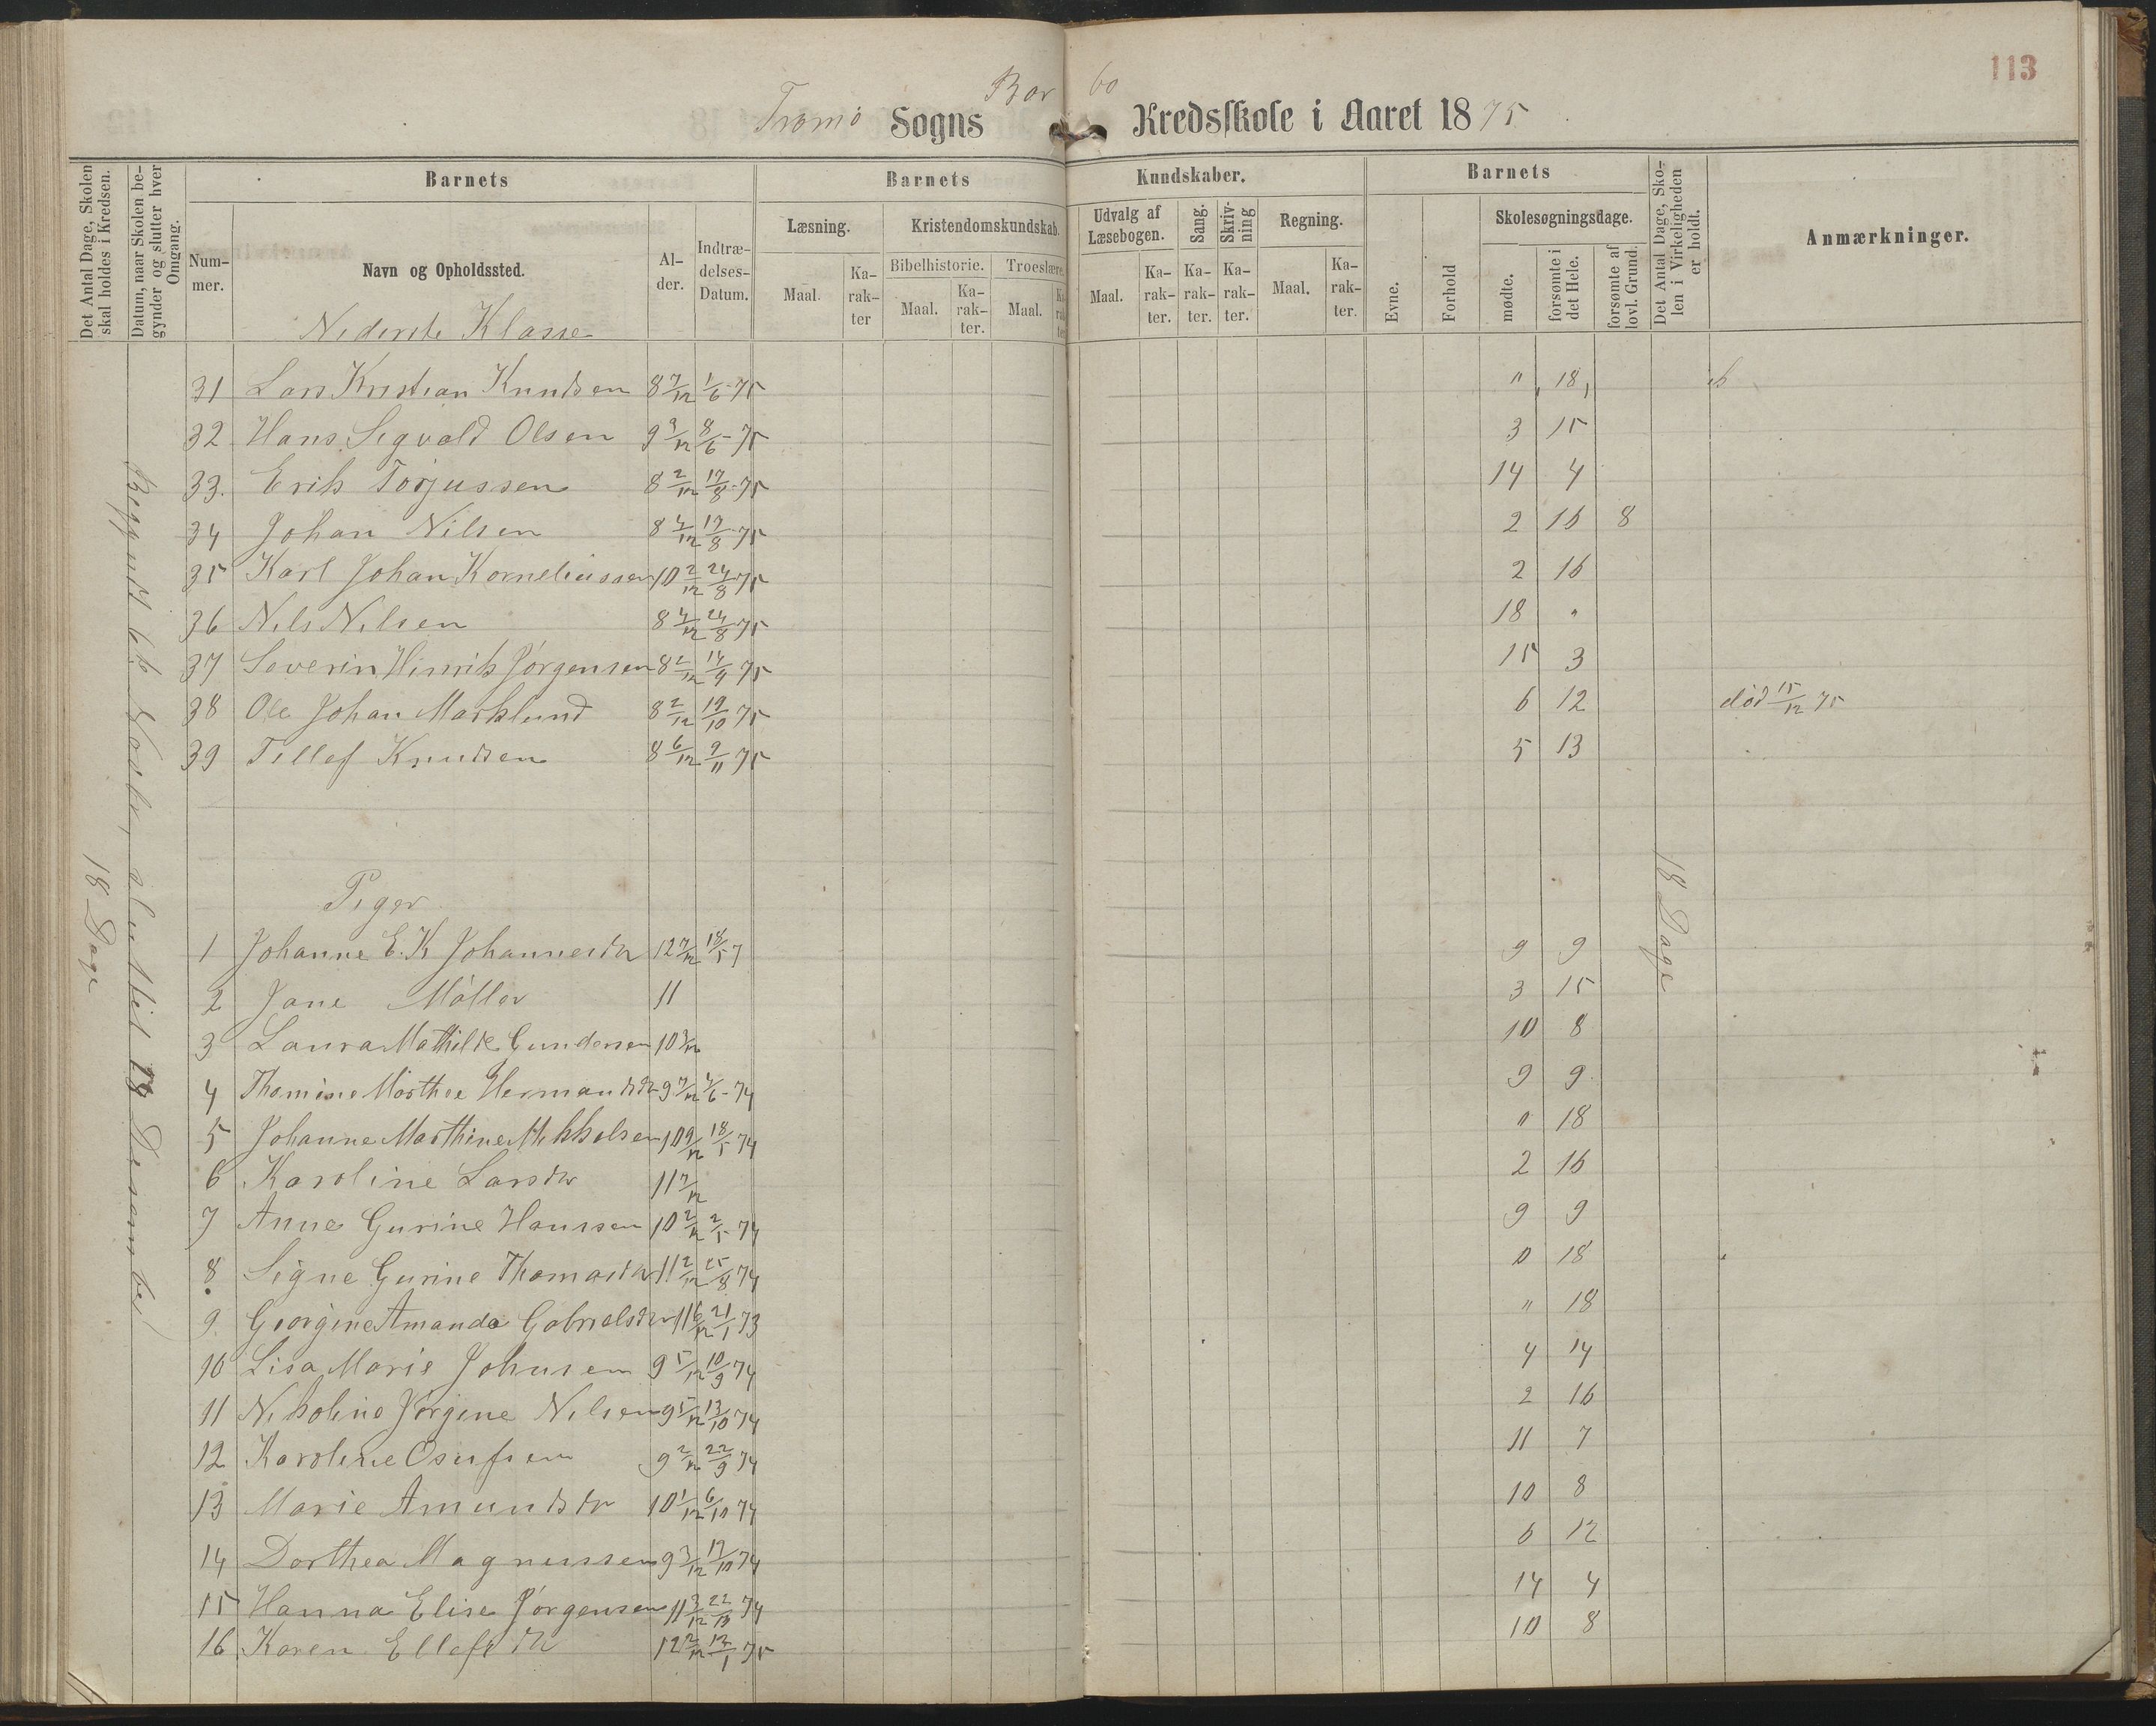 113
Tromø Sogns Borbo Kredsskole i Aaret 1875
Det Antal Dage, Skolen skal holdes i Kredsen.
Datum, naar Skolen begynder og slutter hver Omgang.
Barnets
Nummer.
Navn og Opholdssted.
Alder.
Indtrædelses-Datum.
Barnets Kundskaber.
Læsning.
Maal.
Karakter
Kristendomskundskab.
Bibelhistorie.
Maal.
Karakter.
Troeslære.
Maal.
Karakter
Udvalg af Læsebogen.
Maal.
Karakter.
Sang.
Karakter.
Skrivning
Karakter.
Regning.
Maal.
Karakter.
Barnets
Evne.
Forhold
Skolesøgningsdage.
mødte.
forsømte i det Hele.
forsømte af lovl. Grund.
Det Antal Dage, Skolen i Virkeligheden er holdt.
Anmærkninger.
18 Dage
18 Dage
Nederste Klasse
31 Lars Kristian Knudsen 8 7/12 1/6-75 " 18
32 Hans Sigvald Olsen 9 3/12 8/6-75 3 15
33. Erik Torjussen 8 2/12 17/8-75 14 4
34 Johan Nilsen 8 4/12 17/8-75 2 16 8
35 Karl Johan Korneliussen 10 2/12 24/8 75 2 16
36 Nils Nilsen 8 4/12 24/8 75 18 "
37 Severin Hinrik Jørgensen 8 2/12 14/9 75 15 3
38 Ole Johan Marklund 8 2/12 19/10 75 6 12 død 15/12 75
39 Tellef Knudsen 8 6/12 9/11 75 5 13
Piger
1 Johanne E. K Johannesdtr 12 7/12 18/5 7 9 9
2 Jane Møller 11 3 15
3 Laura Mathilde Gundersen 10 3/12 10 8
4 Thomine Marthee Hermandsdtr 9 7/12 4/6-74 9 9
5 Johanne Marthine Mikkelsen 10 9/12 18/5 74 " 18
6 Karoline Larsdtr 11 7/12 2 16
7 Anne Gurine Hanssen 10 2/12 2/5 74 9 9
8 Signe Gurine Thomasdtr 11 2/12 25/8 74 0 18
9. Georgine Amanda Gabrielsdtr 11 6/12 21/1 73 " 18
10 Lisa Marie Johnsen 9 5/12 10/9 74 4 14
11 Nikoline Jørgine Nilsen 9 5/12 13/10 74 2 16
12 Karoline Osufsen 9 2/12 22/9 74 11 7
13 Marie Amundsdtr 10 1/12 6/10 74 10 8
14 Dorthea Magnussen 9 3/12 17/10 74 6 12
15 Hanna Elise Jørgensen 11 3/12 22/10 74 14 4
16 Karen Ellefsdtr 12 2/12 12/1 75 10 8